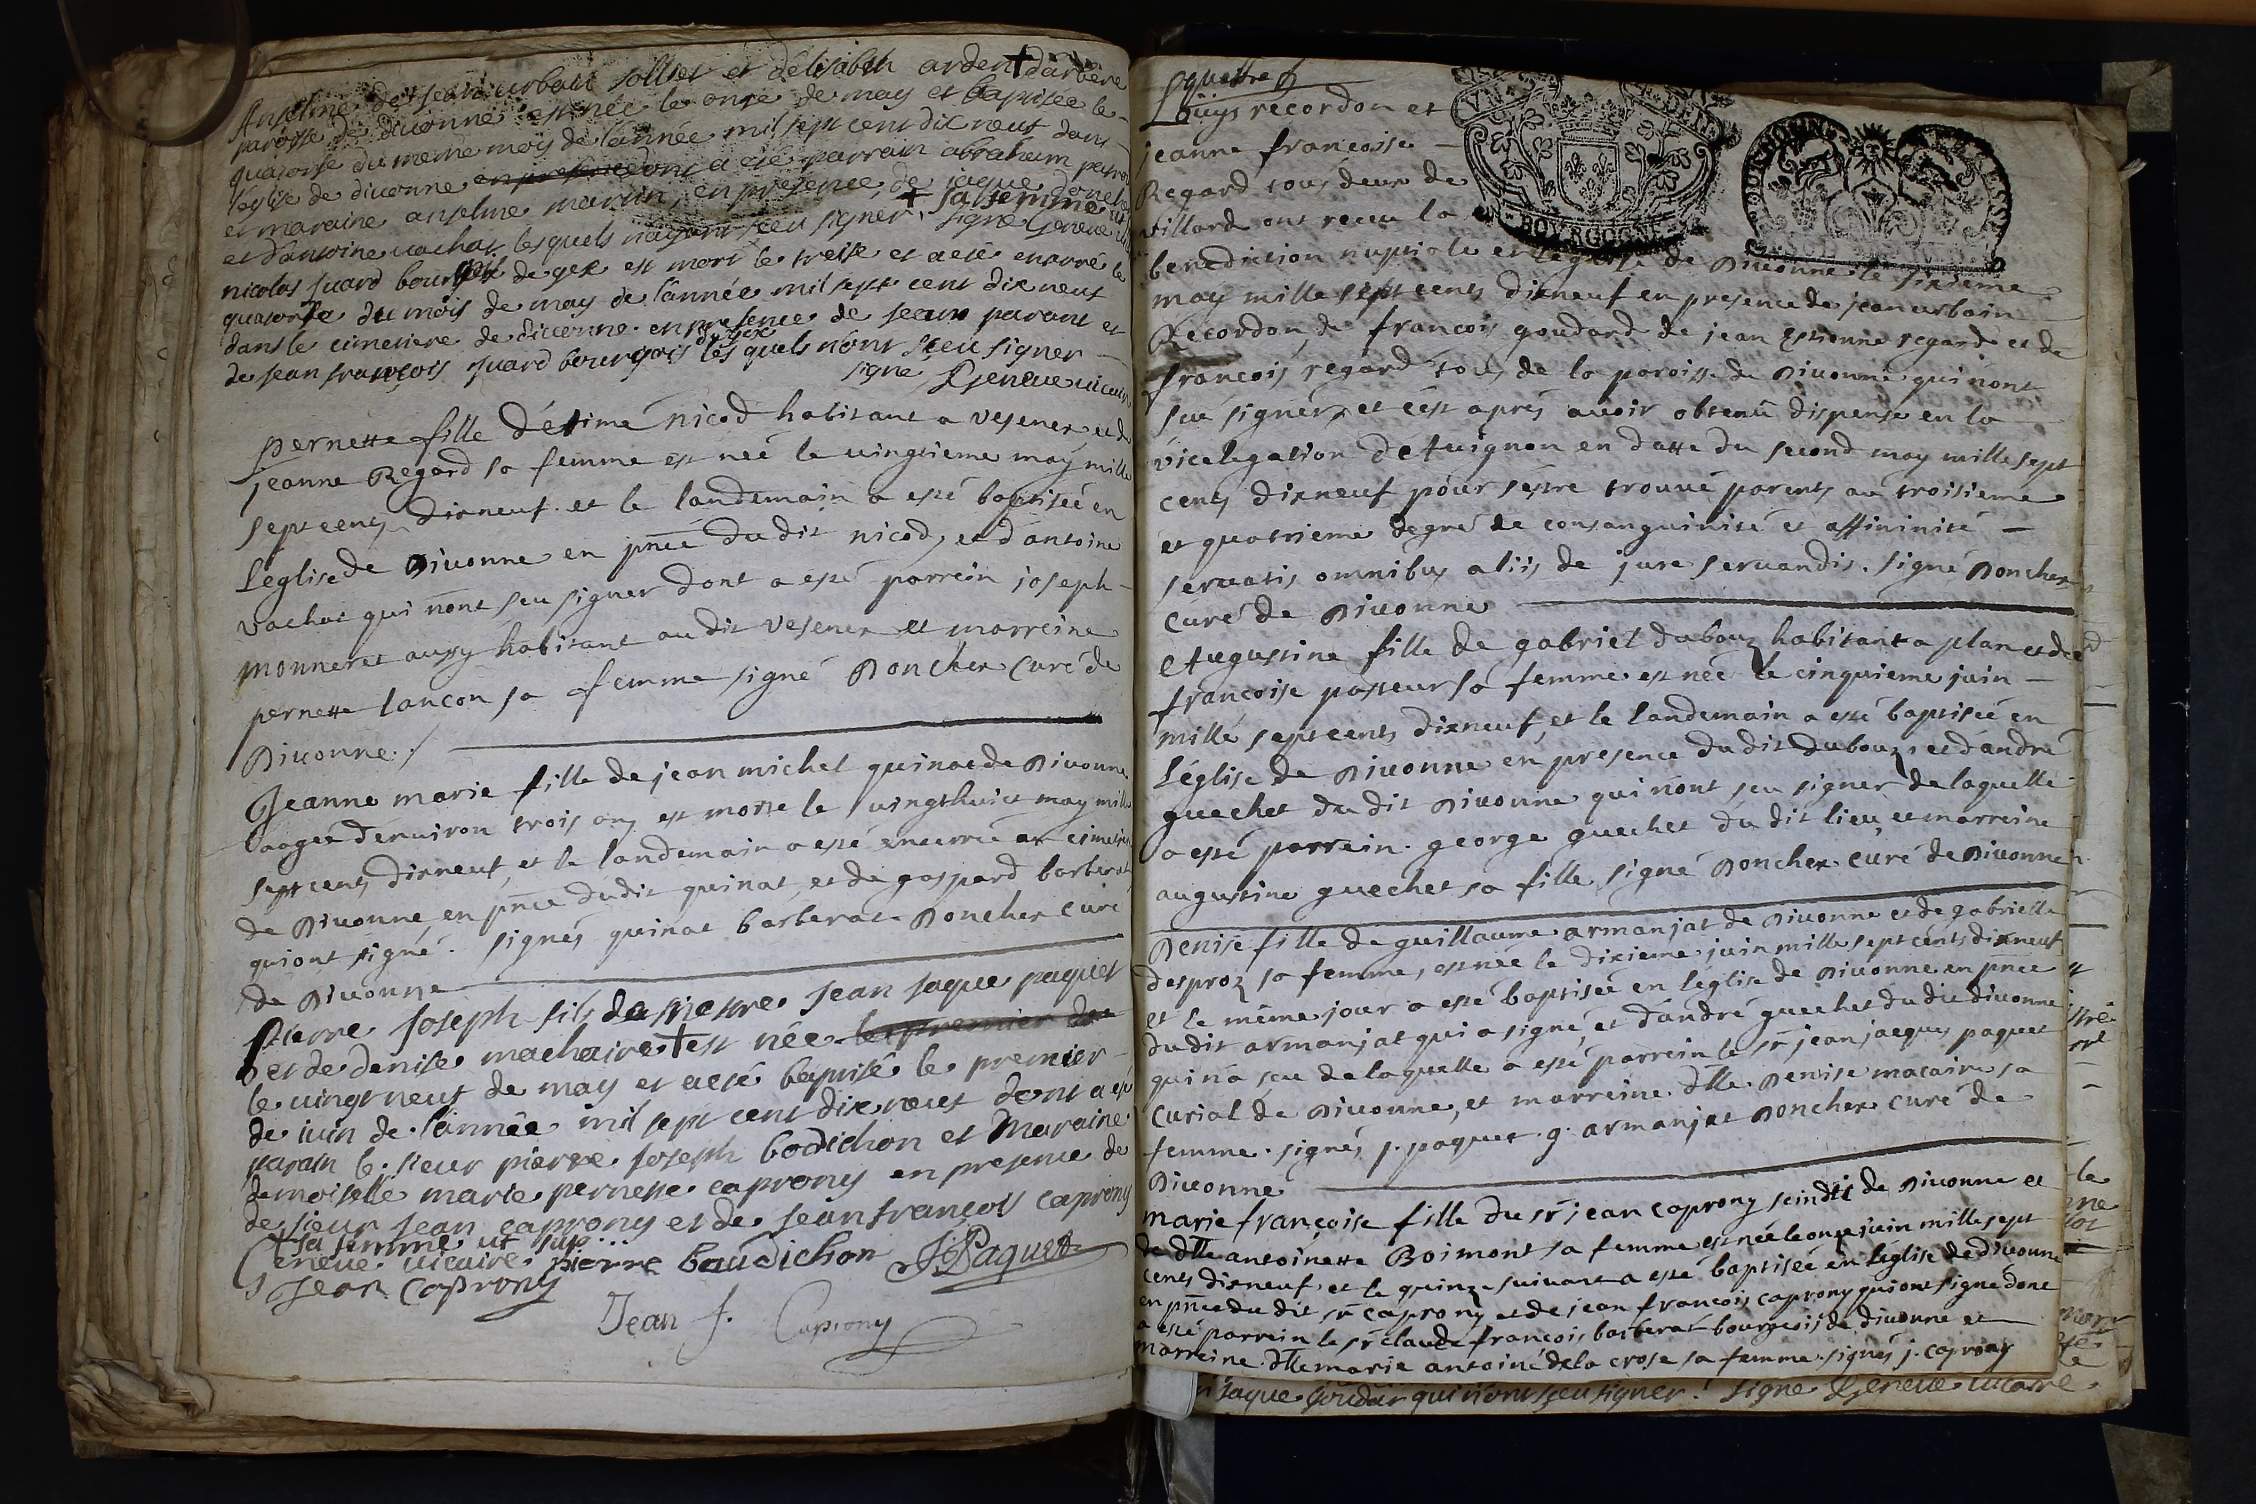 Anselme de Jean urbain sollier et délisabeth arden + darbère
paroisse de diuonne est née le onze de may et baptisée le
quatorse du meme moys de lannée mil sept cent dix neuf dans
léglise de diuonne en presence dont a été parrain abraham
et maraine anselme martin, en presence de jaque
+ sa femme
et dantoine uachat lesquels nayant sceu signer. signe Geneue
nicolas suard bourgeois de gex est mort le treise et a esté enterré le
quatorse du mois de may de lannée mil sept cent dix neuf
dans le cimetiere de diuonne en presence de jean parant et
de gex
de Jean francois suard bourgois lesquels n'ont sceu signer
signe Geneue uicaire
pernette fille d'étime nicod habitant a vesenex et de
jeanne Regard sa femme est neé le uingtieme may mille
sept cents dixneuf et le landemain a esté baptiseé en
l'eglise de Diuonne en pnce dudit nicod, et d'antoine
vachat qui n'ont seu signer dont a esté parrein joseph
monneret aussy habitant audit vesenex et marreine
pernette lancon sa femme signé Doncher curé de
Diuonne ./
Jeanne marie fille de jean michel quinat de Diuonne
aageé denuiron trois ans est morte le uingthuict may mille
sept cents dixneuf, et le landemain a esté enterrée au cimetiere
de Diuonne en pnce dudit quinat, et de gaspard barberat
qui ont signé. signés quinat barberat Doncher curé
de Diuonne
Pierre Joseph fils de mestre Jean Jaque paquet
et de denise machaire + est née le premier de
le uingt neuf de may et a esté baptisé le premier
de iuin de lannée mil sept cent dix neuf dont a esté
parain le sieur pierre Joseph bodichon et Maraine
demoiselle marie pernette caprony en presence de
de sieur Jean caprony et de Jean francois caprony
+ sa femme ut sup...
Geneue uicaire pierre baudichon JPaquet
Jean Caprony
Jean f. Caprony
Louys recordon et
jeanne francoise
Regard tous deux de
villard ont receu la
benediction nuptiale en leglise de Diuonne le sixieme
may mille sept cents dixneuf en presence de jean urbain
Recordon, de francois goudard de jean Estienne regard et de
francois regard tous de la paroisse de Diuonne qui n'ont
seu signer, et c'est aprés auoir obtenû dispense en la
vicelegation d'Auignon en datte du second may mille sept
cents dixneuf pour s'estre trouué parents au troisieme
et quatrieme degré de consanguinité et affininité
seruatis omnibus aliis de jure seruandis. signé Doncher
curé de Diuonne
Augustine fille de gabriel dubouz habitant a plan et de
francoise passeur sa femme est neé le cinquieme juin
mille septcents dixneuf, et le landemain a esté baptiseé en
l'église de Diuonne en presence dudit dubouz, et dandré
guechet dudit Diuonne qui n'ont seu signer de laquelle
a esté parrein george guechet dudit lieu, et marreine
augustine guechet sa fille signé Doncher curé de Diuonne
Denise fille de guillaume armanjat de Diuonne et de gabrielle
desproz sa femme, est née le dixieme juin mille sept cents dixneuf
et le même jour a esté baptiseé en l'église de Diuonne en pnce
dudit armanjat qui a signé, et d'andré guechet dudit diuonne
qui n'a seu de laquelle a esté parrein le sr jean jacques paquet
curial de Diuonne, et marreine dlle Denise macaire sa
femme. signés j. paquet. g. armanjat Doncher curé de
Diuonne
Marie françoise fille du sr jean caprony scindic de Diuonne et
de dlle antoinette Boimont sa femme est née le onze juin mille sept
cents dixneuf et le quinze suivant a esté baptisée en l'église de diuonne
en pnce du dit sr caprony et de jean francois caprony qui ont signé dont
a esté parrein le sr claude francois barberat bourgeois de diuonne et
marreine dlle marie antoine de la crose sa femme. signés j. caprony
jaque goudar qui n'ont sceu signer. signe Geneue uicaire.